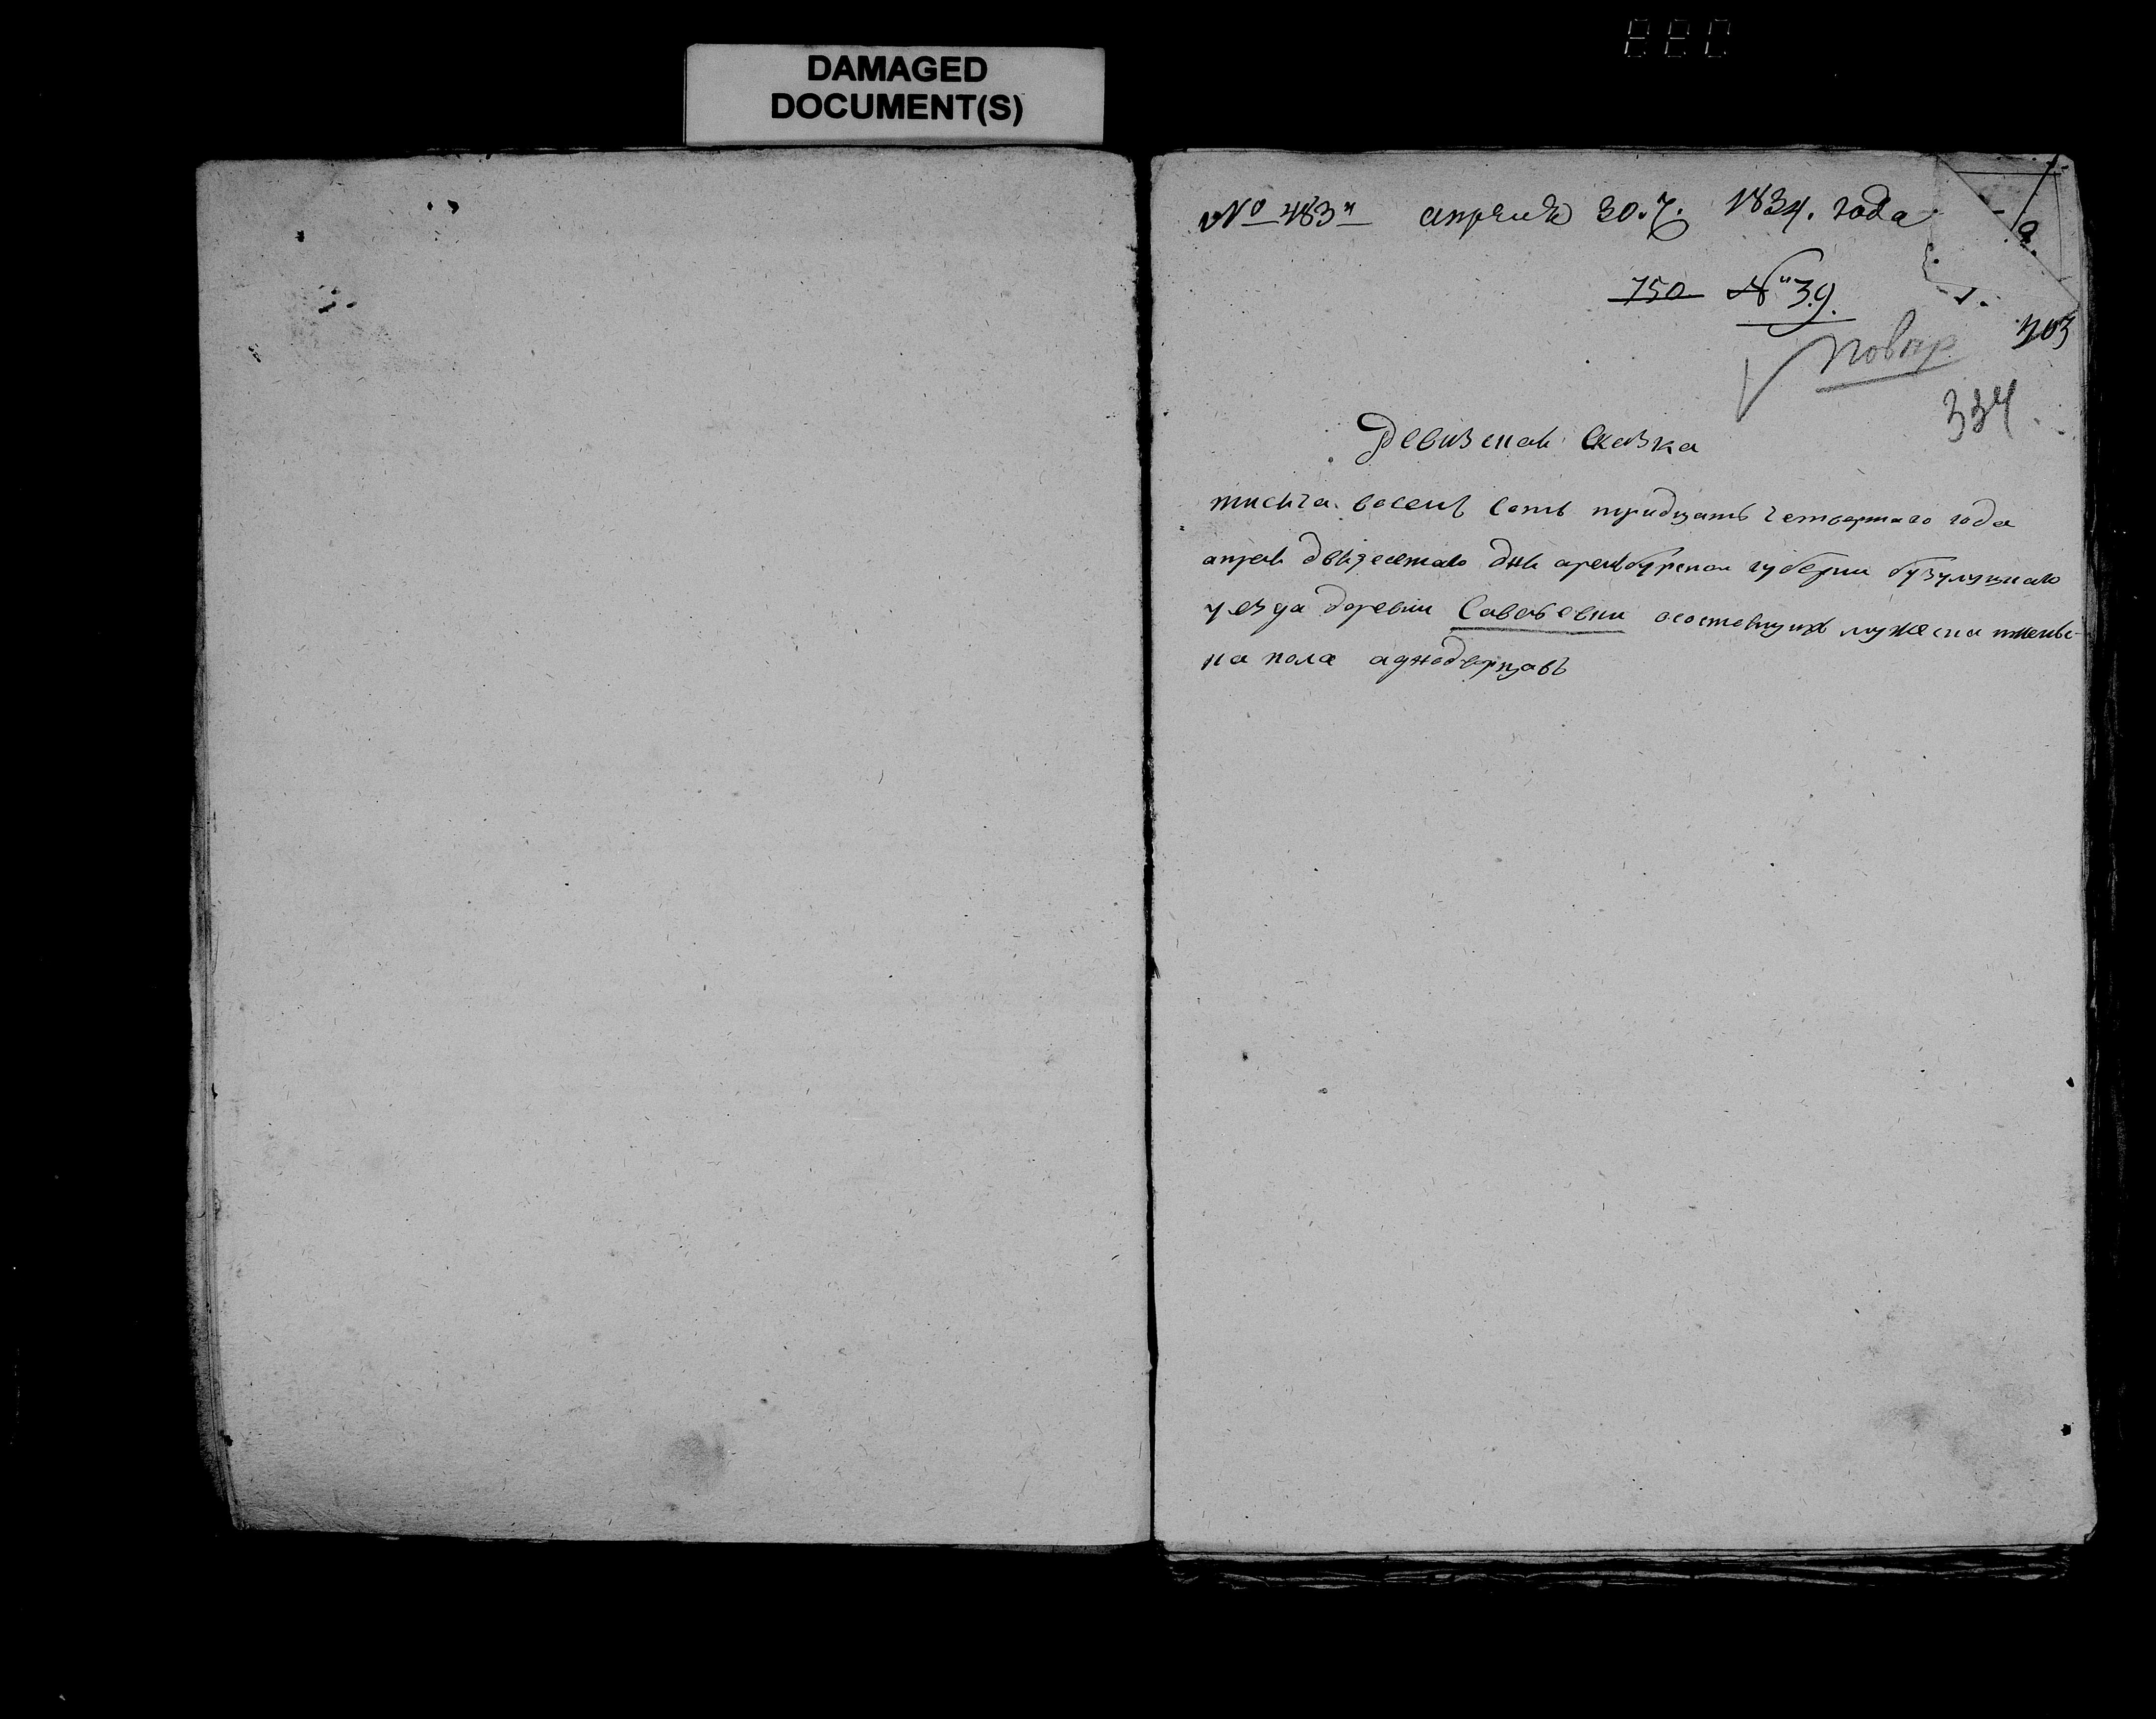 DAMAGED
DOCUMENT(S)
№ 483й апреля 30. ч. 1834. года
750 № 39.
повер
703
334
Ревизская Сказка
тисяча восемь сотъ тридцать четвертаго года
апреля двацетаго дня аренбурскои губерни бузулуцкаго
уезда деревни Савельевки осостоящихъ мужеска иженс-
ка пола аднодворцавъ